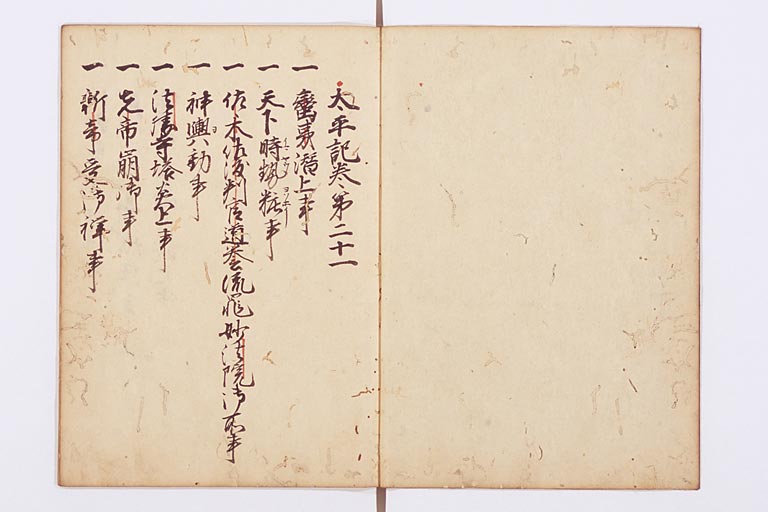 太平記巻第二十一
一 蛮夷僭上事
一 天下時勢粧事
一 佐々木佐渡判官道誉流罪妙法院御所事
一 神輿入動事
一 法勝寺塔炎上事
一 先帝崩御事
一 新帝受御禅事